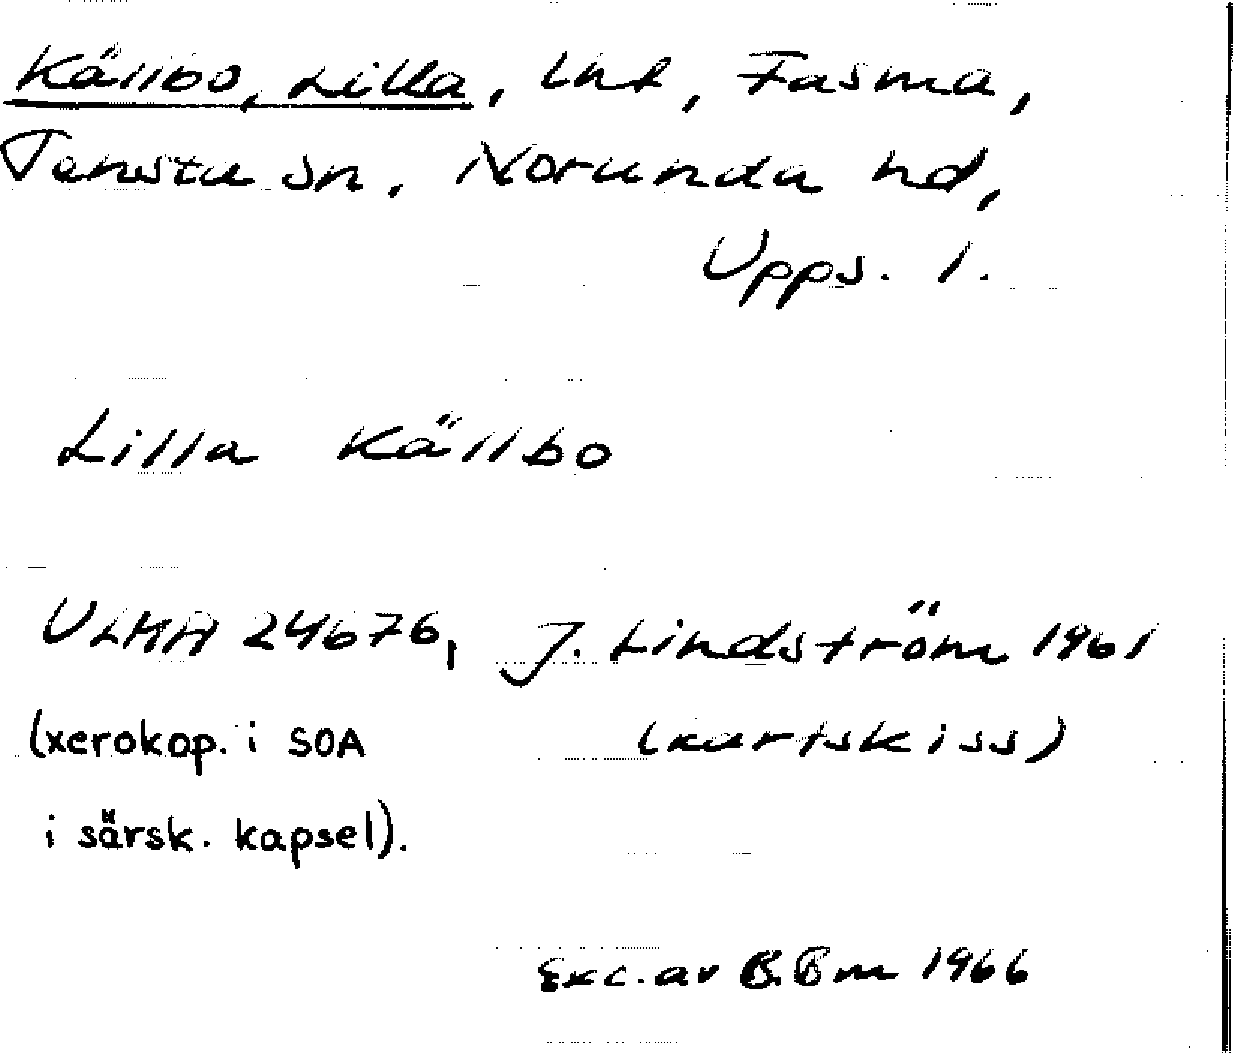 Källbo, Lilla, lht, Fasma,
Tensta sn, Norunda hd,
Upps. l.
Lilla Källbo
ULMA 24676, J. Lindström 1961
(xerokop. i SOA (kartskiss)
i särsk. kapsel).
Exc. av B. Bm 1966